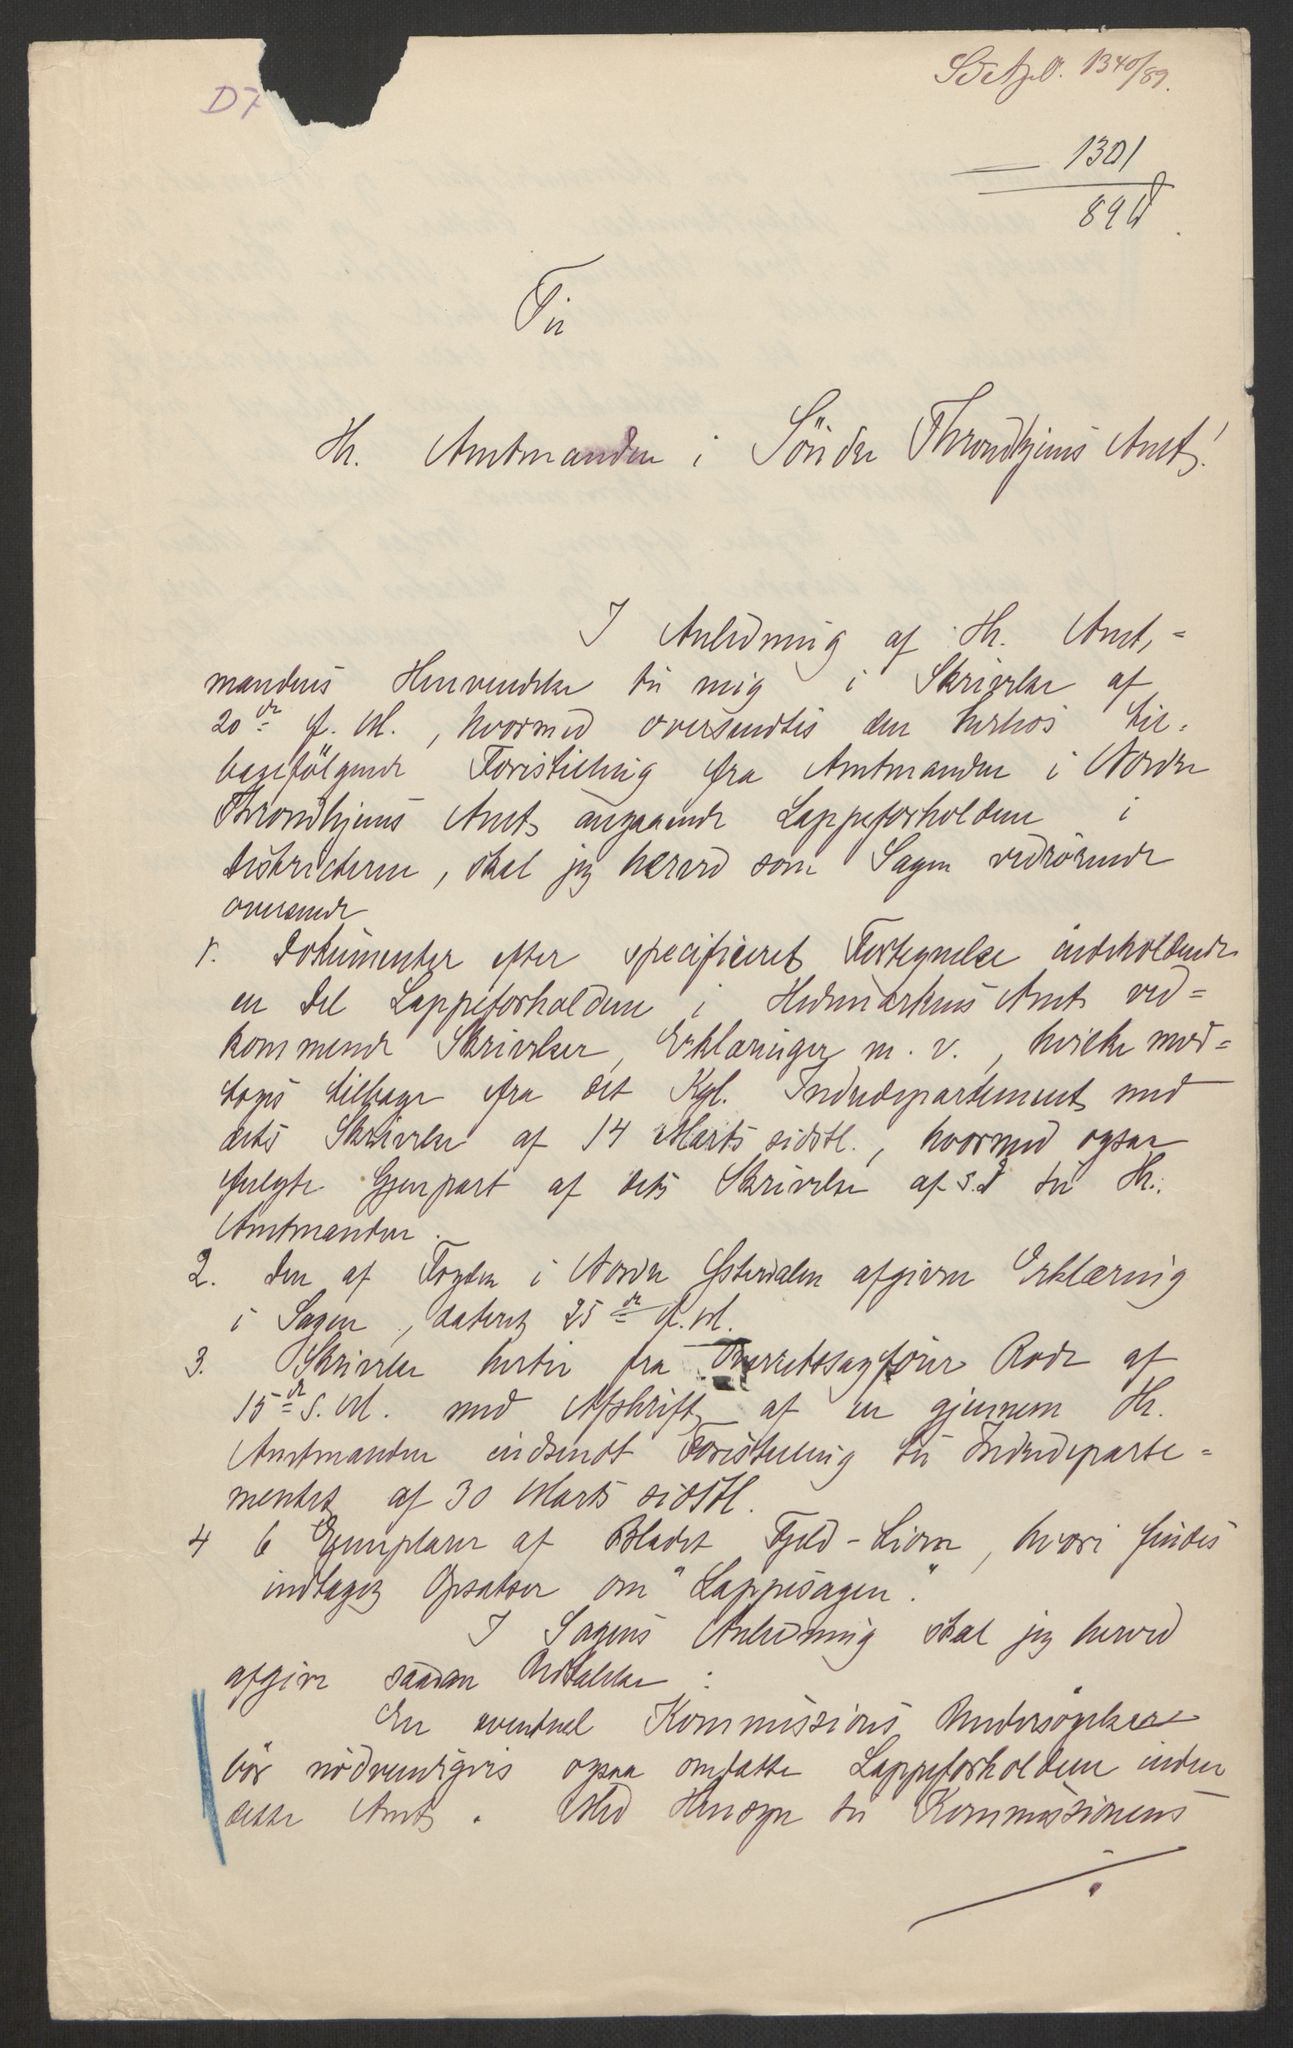 D7
1340/89.
1301
89
Til
Hr. Amtmanden i Söndre Throndhjems Amt!
I Anledning af Hr. Amt-
mandens Henvendelse til mig i Skrivelse af
20de f. M., hvormed oversendtes den herhos til-
bagefölgende Forestilling fra Amtmanden i Nordre
Throndhjems Amt angaaende Lappeforholdene i
Distrikterne, skal jeg herved som Sagen vedrörende
oversende
1. Dokumenter efter specificeret Fortegnelse indeholdende
en Del Lappeforholdene i Hedemarkens Amt ved-
kommende Skrivelser, Erklæringer m. v., hvilke mod-
toges tilbage fra det Kgl. Indredepartement med
dets Skrivelse af 14 Marts sidstl., hvormed ogsaa
fulgte Gjenpart af dets Skrivelse af s. d til Hr.
Amtmanden.
2. Den af Fogden i Nordre Østerdalen afgivne Erklæring
i Sagen, dateret 25de f. M.
3. Skrivelse hertil fra Overretssagförer Rode af
15de s. M. med Afskrift af en gjennem Hr.
Amtmanden indsendt Forestilling til Indredeparte-
mentet af 30 Marts sidstl.
4 6 Exemplarer af Bladet Fjeld-Ljom, hvori findes
indtaget Opsatser om "Lappesagen".
I Sagens Anledning skal jeg herved
afgive saadan Udtalelse:
En eventuel Kommissions Undersögelser
bör nödvendigvis ogsaa omfatte Lappeforholdene inden
dette Amt. Med Hensyn til Kommissionens